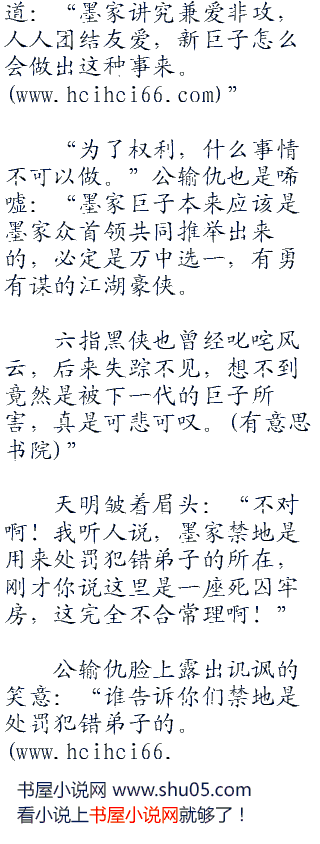 道：“墨家讲究兼爱非攻，
人人团结友爱，新巨子怎么
会做出这种事来。
(www.hcihci66.com)”
“为了权利，什么事情
不可以做。”公输仇也是唏
嘘：“墨家巨子本来应该是
墨家众首领共同推举出来
的，必定是万中选一，有勇
有谋的江湖豪侠。
六指黑侠也曾经叱咤风
云，后来失踪不见，想不到
竟然是被下一代的巨子所
害，真是可悲可叹。(有意思
书院)”
天明皱着眉头：“不对
啊！我听人说，墨家禁地是
用来处罚犯错弟子的所在，
刚才你说这里是一座死囚牢
房，这完全不合常理啊！”
公输仇脸上露出讥讽的
笑意：“谁告诉你们禁地是
处罚犯错弟子的。
(www.hcihci66.
书屋小说网 www.shu05.com
看小说上书屋小说网就够了！